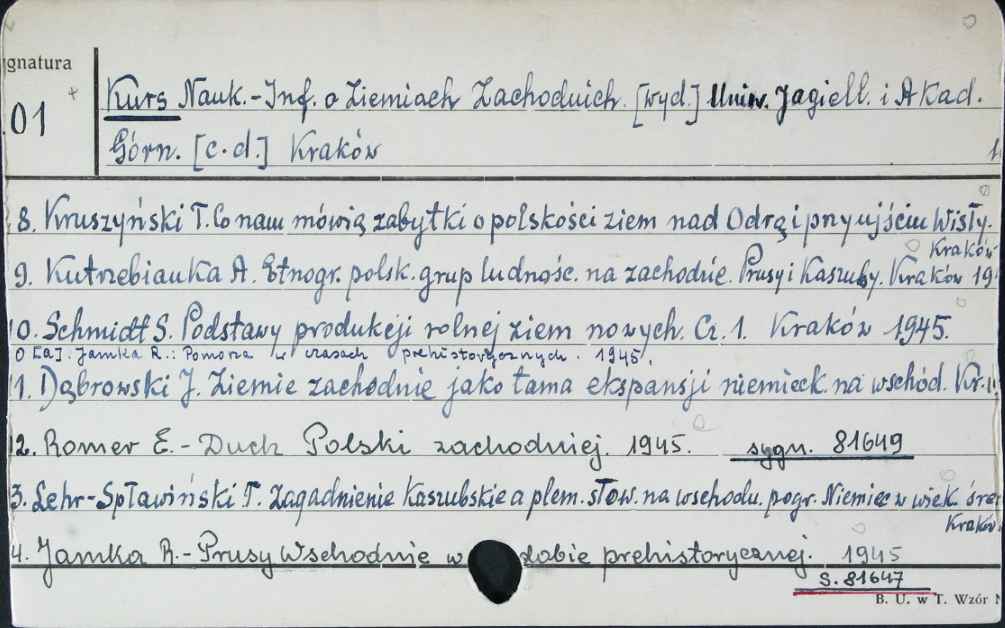 gnatura
01
Kurs Nauk.-Inf. o Ziemiach Zachodnich. [wyd.] Uniw. Jagiell. i Akad.
Górn. [c.d.] Kraków 1
8. Kruszyński T. Co nam mówią zabytki o polskości ziem nad Odrą i przy ujściu Wisły.
Kraków
9. Kutrzebianka A. Etnogr. polsk. grup ludnośc. na zachodzie. Prusy i Kaszuby. Kraków 19
10. Schmidt S. Podstawy produkcji rolnej ziem nowych. Cz. 1. Kraków 1945.
0 [a]. Jamka R.: Pomorze w czasach prehistorycznych. 1945.
11. Dąbrowski J. Ziemie zachodnie jako tama ekspansji niemieck. na wschód. Kr.
12. Romer E. - Duch Polski zachodniej. 1945. sygn. 81649
3. Lehr-Spławiński T. Zagadnienie Kaszubskie a plem. słow. na wschodn. pogr. Niemiec w wiek. śre
Kraków
4. Jamka R. - Prusy Wschodnie w dobie prehistorycznej. 1945
S. 81647
B. U. w T. Wzór